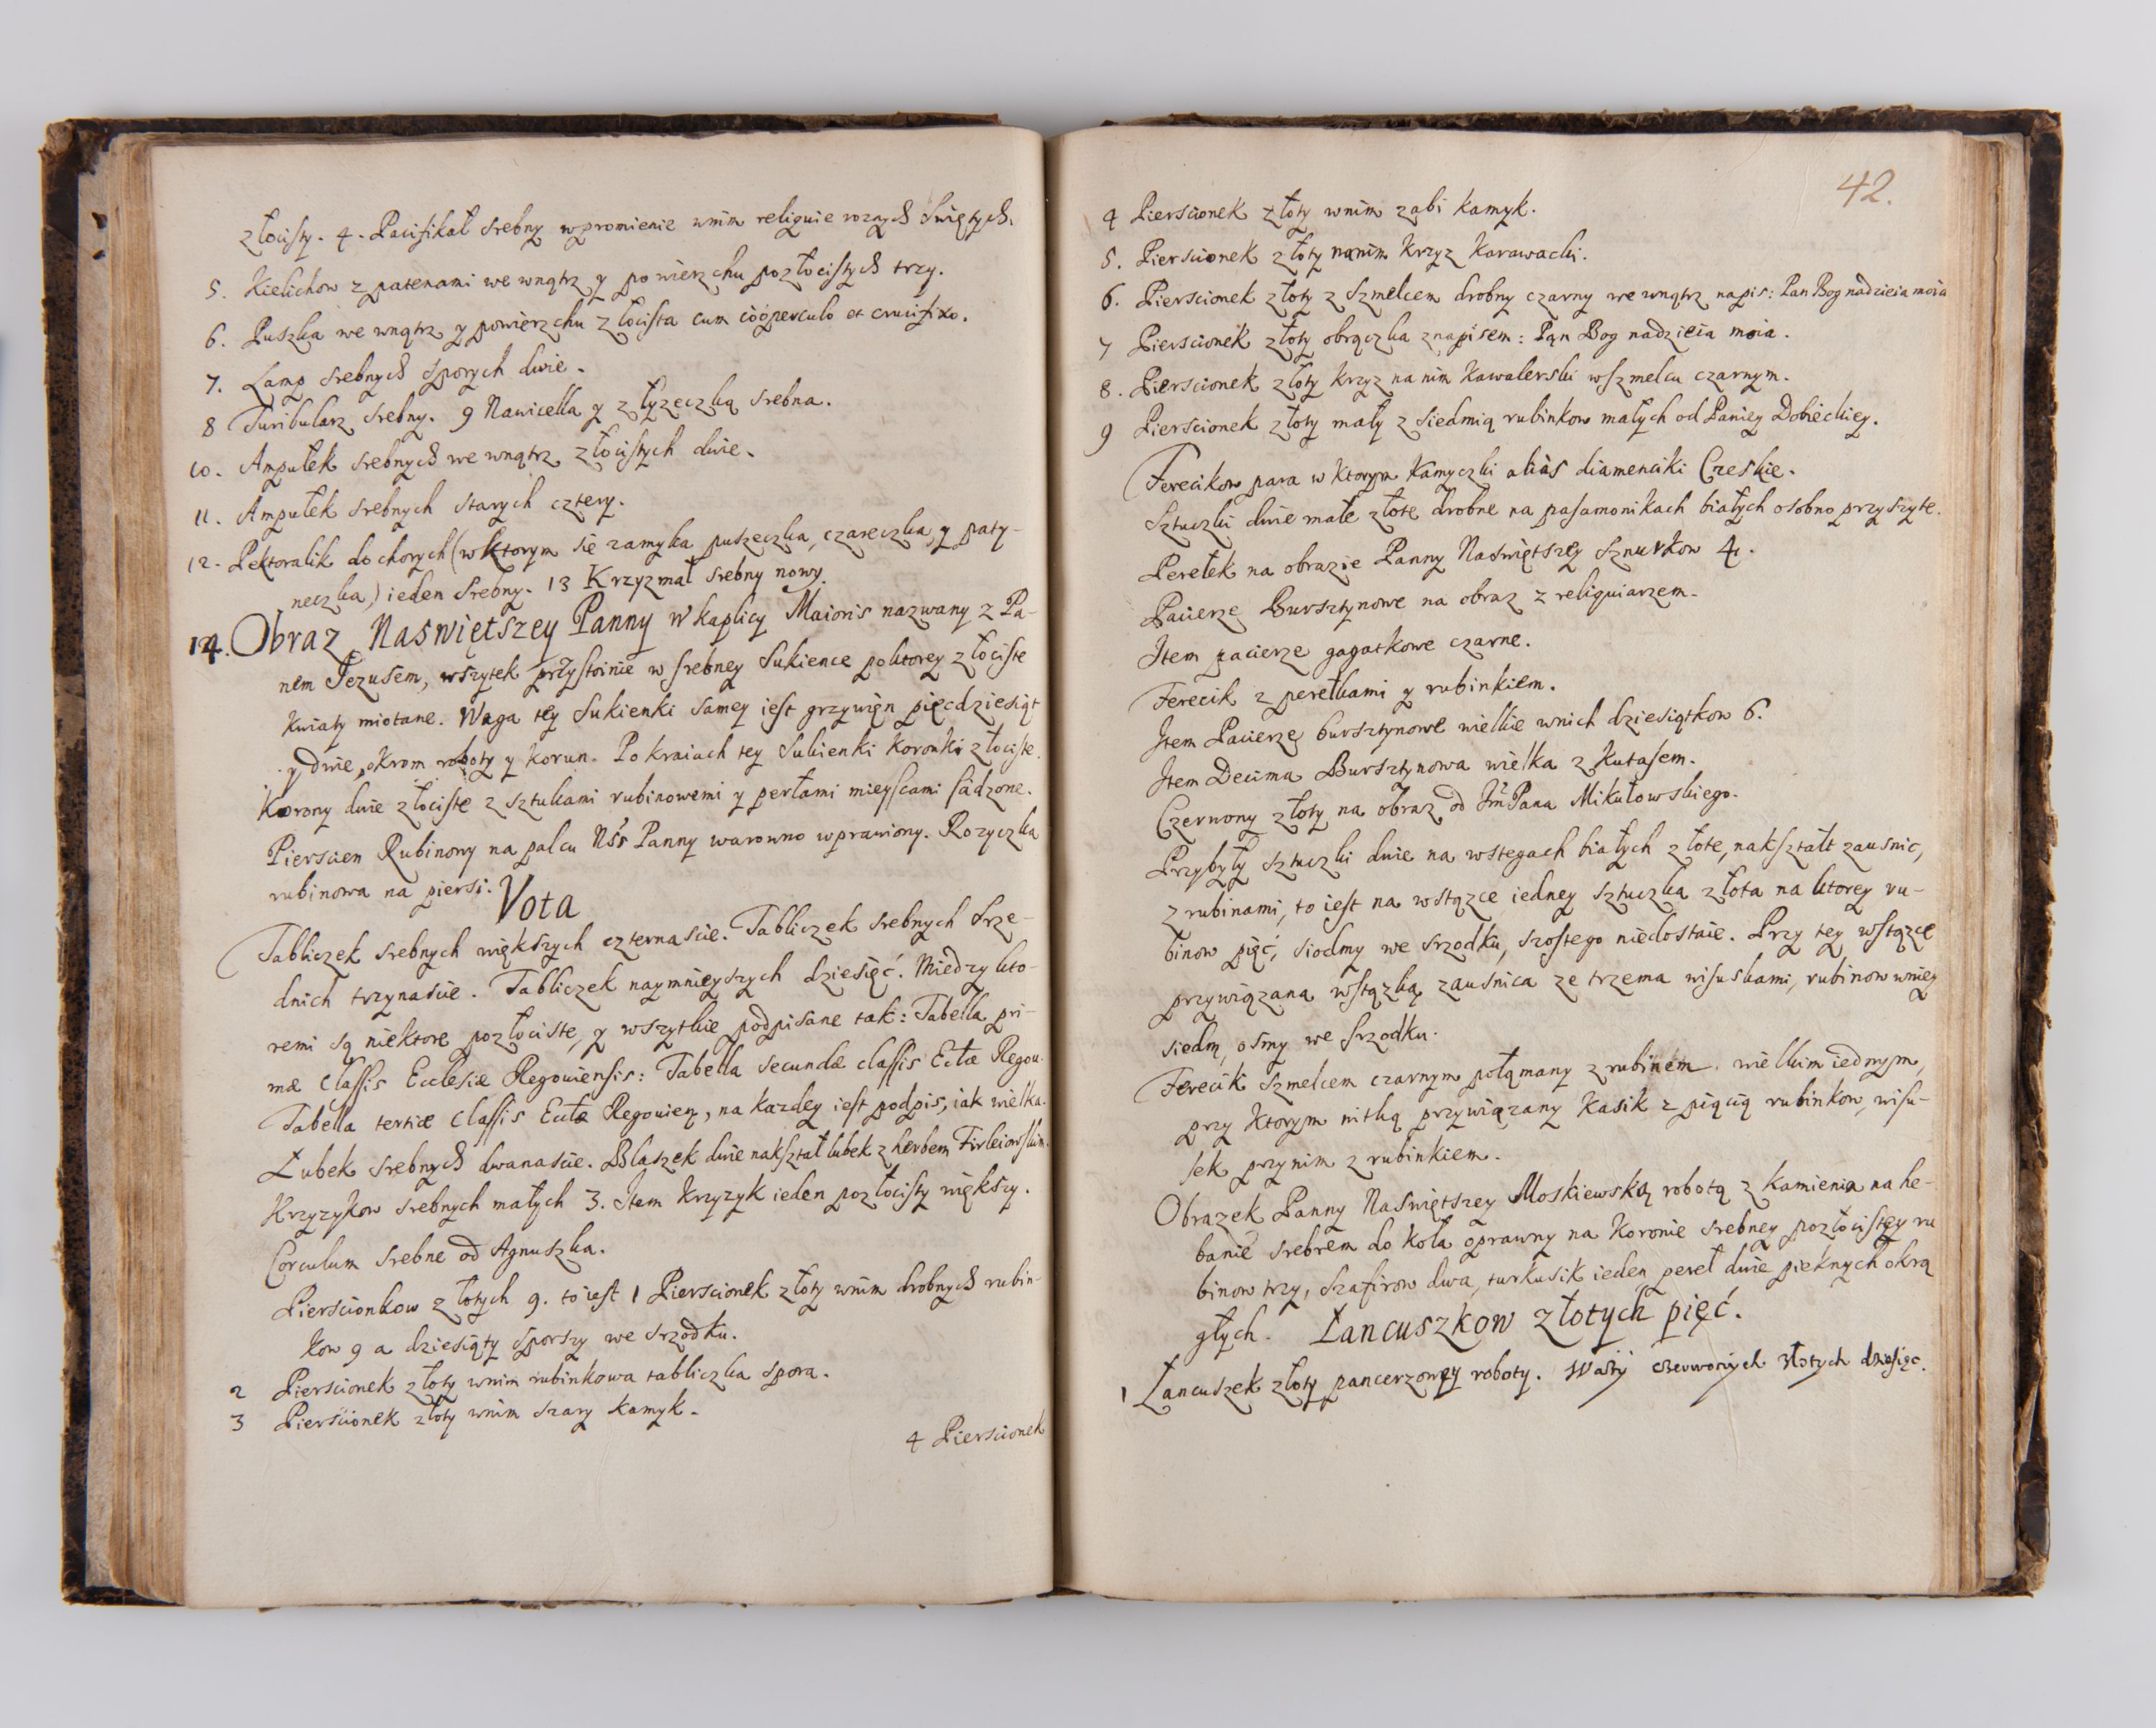 złocisty. 4. Pacifikał srebny w promienie wnim reliquie roznych Swiętych.
5. Kielichow z patenami we wnątrz y powierzchu pozłocistych trzy.
6. Puszka we wnątrz y powierzchu złocista cum cooperculo et crucifixo.
7. Lamp srebnych sporych dwie.
8 Turibularz srebny. 9 Nawicella y z łyzeczką srebna.
10. Ampułek srebnych we wnątrz złocistych dwie.
11. Ampułek srebnych starych cztery.
12. Pektoralik do chorych (w ktorym się zamyka puszeczka, czareczka, y paty-
neczka) ieden srebny. 13 Krzyzmał srebny nowy.
14. Obraz Naswiętszey Panny w kaplicy Maioris nazwany z Pa-
nem Jezusem, wszytek przystoinie w srebney Sukience po ktorey złociste
kwiaty miotane. Waga tey Sukienki samey iest grzywięn pięcdziesiąt
y dwie, okrom roboty y korun. Po kraiach tey Sukienki koronki złociste.
Korony dwie złociste z sztukami rubinowemi y perłami mieyscami sadzone.
Piersicen Rubinowy na palcu Nśś Panny warowno wprawiony. Rozyczka
rubinowa na piersi.
Vota
Tabliczek srebnych większych czternascie. Tabliczek srebnych srze-
dnich trzynascie. Tabliczek naymnieyszych dziesięć. Miedzy kto-
remi są niektore pozłociste, y wszytkie podpisane tak: Tabella pri-
mæ Classis Ecclesiæ Regoviensis: Tabella secundæ classis Ecłæ Regou.
Tabella tertiæ Classis Ecłæ Regouien, na kazdey iest podpis, iak wielka.
Łubek srebnych dwanascie. Blaszek dwie nakształ lubek z herbem Firleiowskim.
Krzyzykow srebnych małych 3. Item Krzyzyk ieden pozłocisty większy.
Corculum srebne od Agnuszka.
Pierscionkow złotych 9. to iest 1 Pierscionek złoty wnim drobnych rubin-
kow 9 a dziesiąty sporszy we srzodku.
2 Pierscionek złoty wnim rubinkowa tabliczka spora.
3 Pierscionek złoty wnim szary kamyk.
4 Pierscionek
42.
4 Pierscionek złoty wnim zabi kamyk.
5. Pierscionek złoty nanim krzyz Karawacki.
6. Pierscionek złoty z szmelcem drobny czarny we wnątrz napis: Pan Bog nadzieia moia
7 Pierscionek złoty obrączka z napisem: Pan Bog nadzieia moia.
8. Pierscionek złoty krzyz na nim Kawalerski wszmelcu czarnym.
9 Pierscionek złoty mały z siedmią rubinkow małych od Paniey Dobieckiey.
Ferecikow para w ktorym kamyczki alias diamenciki Czeskie.
Sztuczki dwie małe złote drobne na pasamonikach białych osobno przyszyte.
Perełek na obrazie Panny Naswiętszey sznurkow 4.
Pacierze Bursztynowe na obraz z reliquiarzem.
Item pacierze gagatkowe czarne.
Ferecik z perełkami y rubinkiem.
Item Pacierze bursztynowe wielkie wnich dziesiątkow 6.
Item Decima Bursztynowa wielka z Kutasem.
Czerwony złoty na obraz od Jm Pana Mikułowskiego.
Przybyły sztuczki dwie na wstęgach białych złote, nakształt zausnic,
z rubinami, to iest na wstązce iedney sztuczka złota na ktorey ru-
binow pięć, siodmy we srzodku, szostego niedostaie. Przy tey wstązce
przywiązana wstązką zausnica ze trzema wisuskami, rubinow wniey
siedm, osmy we srzodku.
Ferecik szmelcem czarnym połamany z rubinem wielkim iednym,
przy ktorym nitką przywiązany Kasik z pięcią rubinkow, wisu-
sek przynim z rubinkiem.
Obrazek Panny Naswiętszey Moskiewską robotą z kamienia na he-
banie srebrem do koła oprawny na koronie srebney pozłocistey ru
binow trzy, Szafirow dwa, turkusik ieden pereł dwie pieknych okrą
głych. Łancuszkow złotych pięć.
1 Łancuszek złoty pancerzowey roboty. Wazy czerwonych złotych dziesięc.